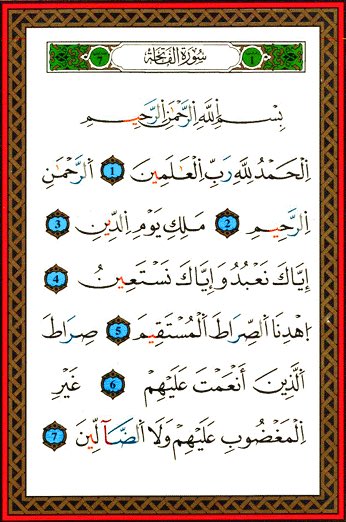 ٧ سُورَةُ الْفَاتِحَةِ ١
بِسْمِ اللَّهِ الرَّحْمَٰنِ الرَّحِيمِ
اِلْحَمْدُ لِلَّهِ رَبِّ اِلْعَٰلَمِينَ 1 اَلرَّحْمَٰنِ
اِلرَّحِيمِ 2 مَلِكِ يَوْمِ اِلدِّينِ 3
إِيَّاكَ نَعْبُدُ وَإِيَّاكَ نَسْتَعِينُ 4
اِهْدِنَا اَلصِّرَاطَ اَلْمُسْتَقِيمَ 5 صِرَاطَ
اَلَّذِينَ أَنْعَمْتَ عَلَيْهِمْ 6 غَيْرِ
اِلْمَغْضُوبِ عَلَيْهِمْ وَلَا اَلضَّآلِّينَ 7